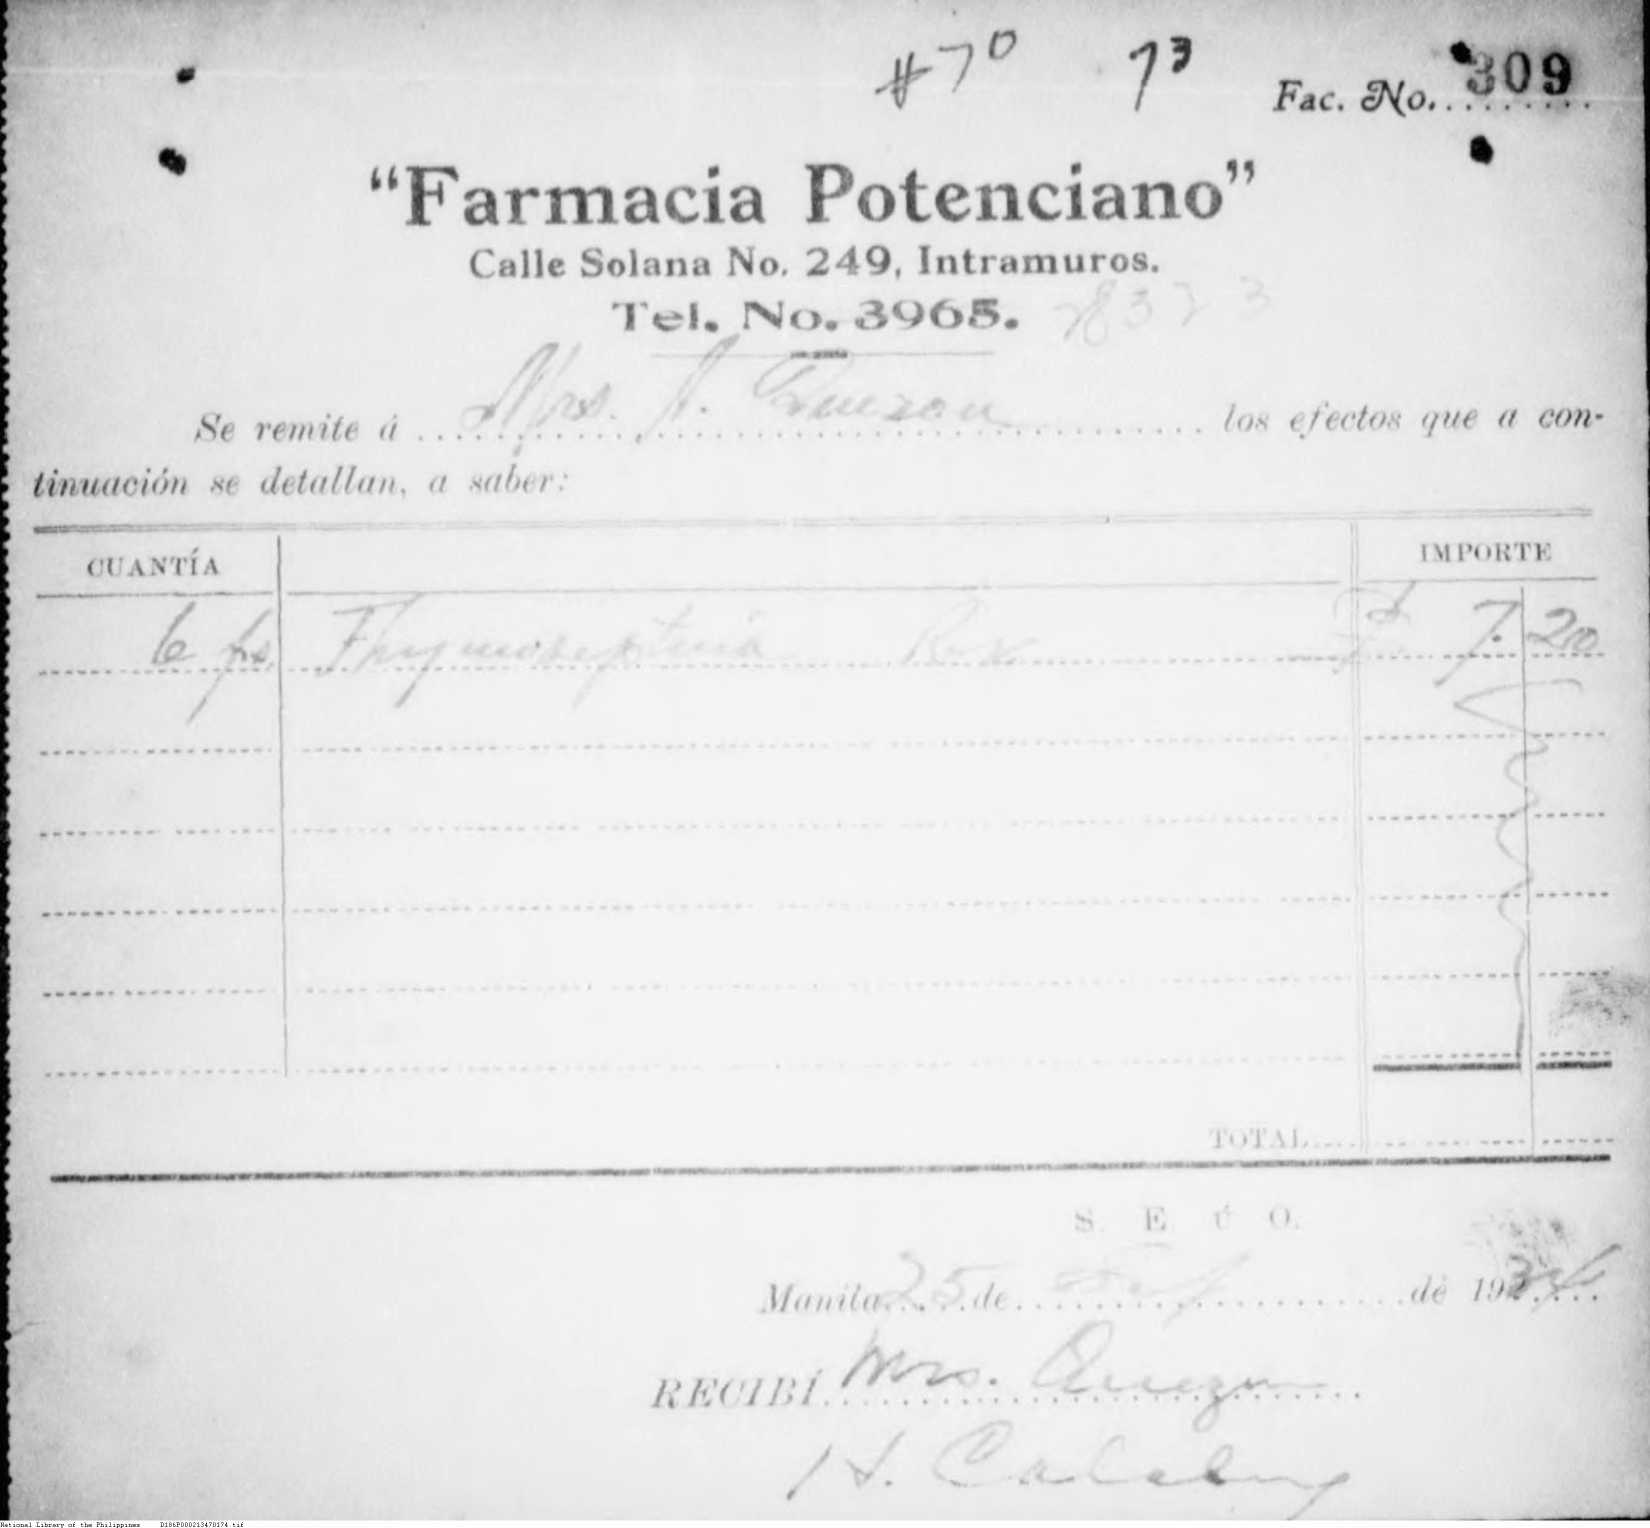 #70 73
Fac. No. 309
“Farmacia Potenciano”
Calle Solana No. 249, Intramuros.
Tel. No. 3965. 28323
Se remite á Mrs. A. Quezon los efectos que a con-
tinuación se detallan, a saber:
CUANTÍA IMPORTE
6 fs. Thymoseptina Rx ₱ 7.20
TOTAL
S. E. ú O.
Manila 25 de de 1934
RECIBÍ Mrs. Quezon
National Library of the Philippines D186P000213470174.tif